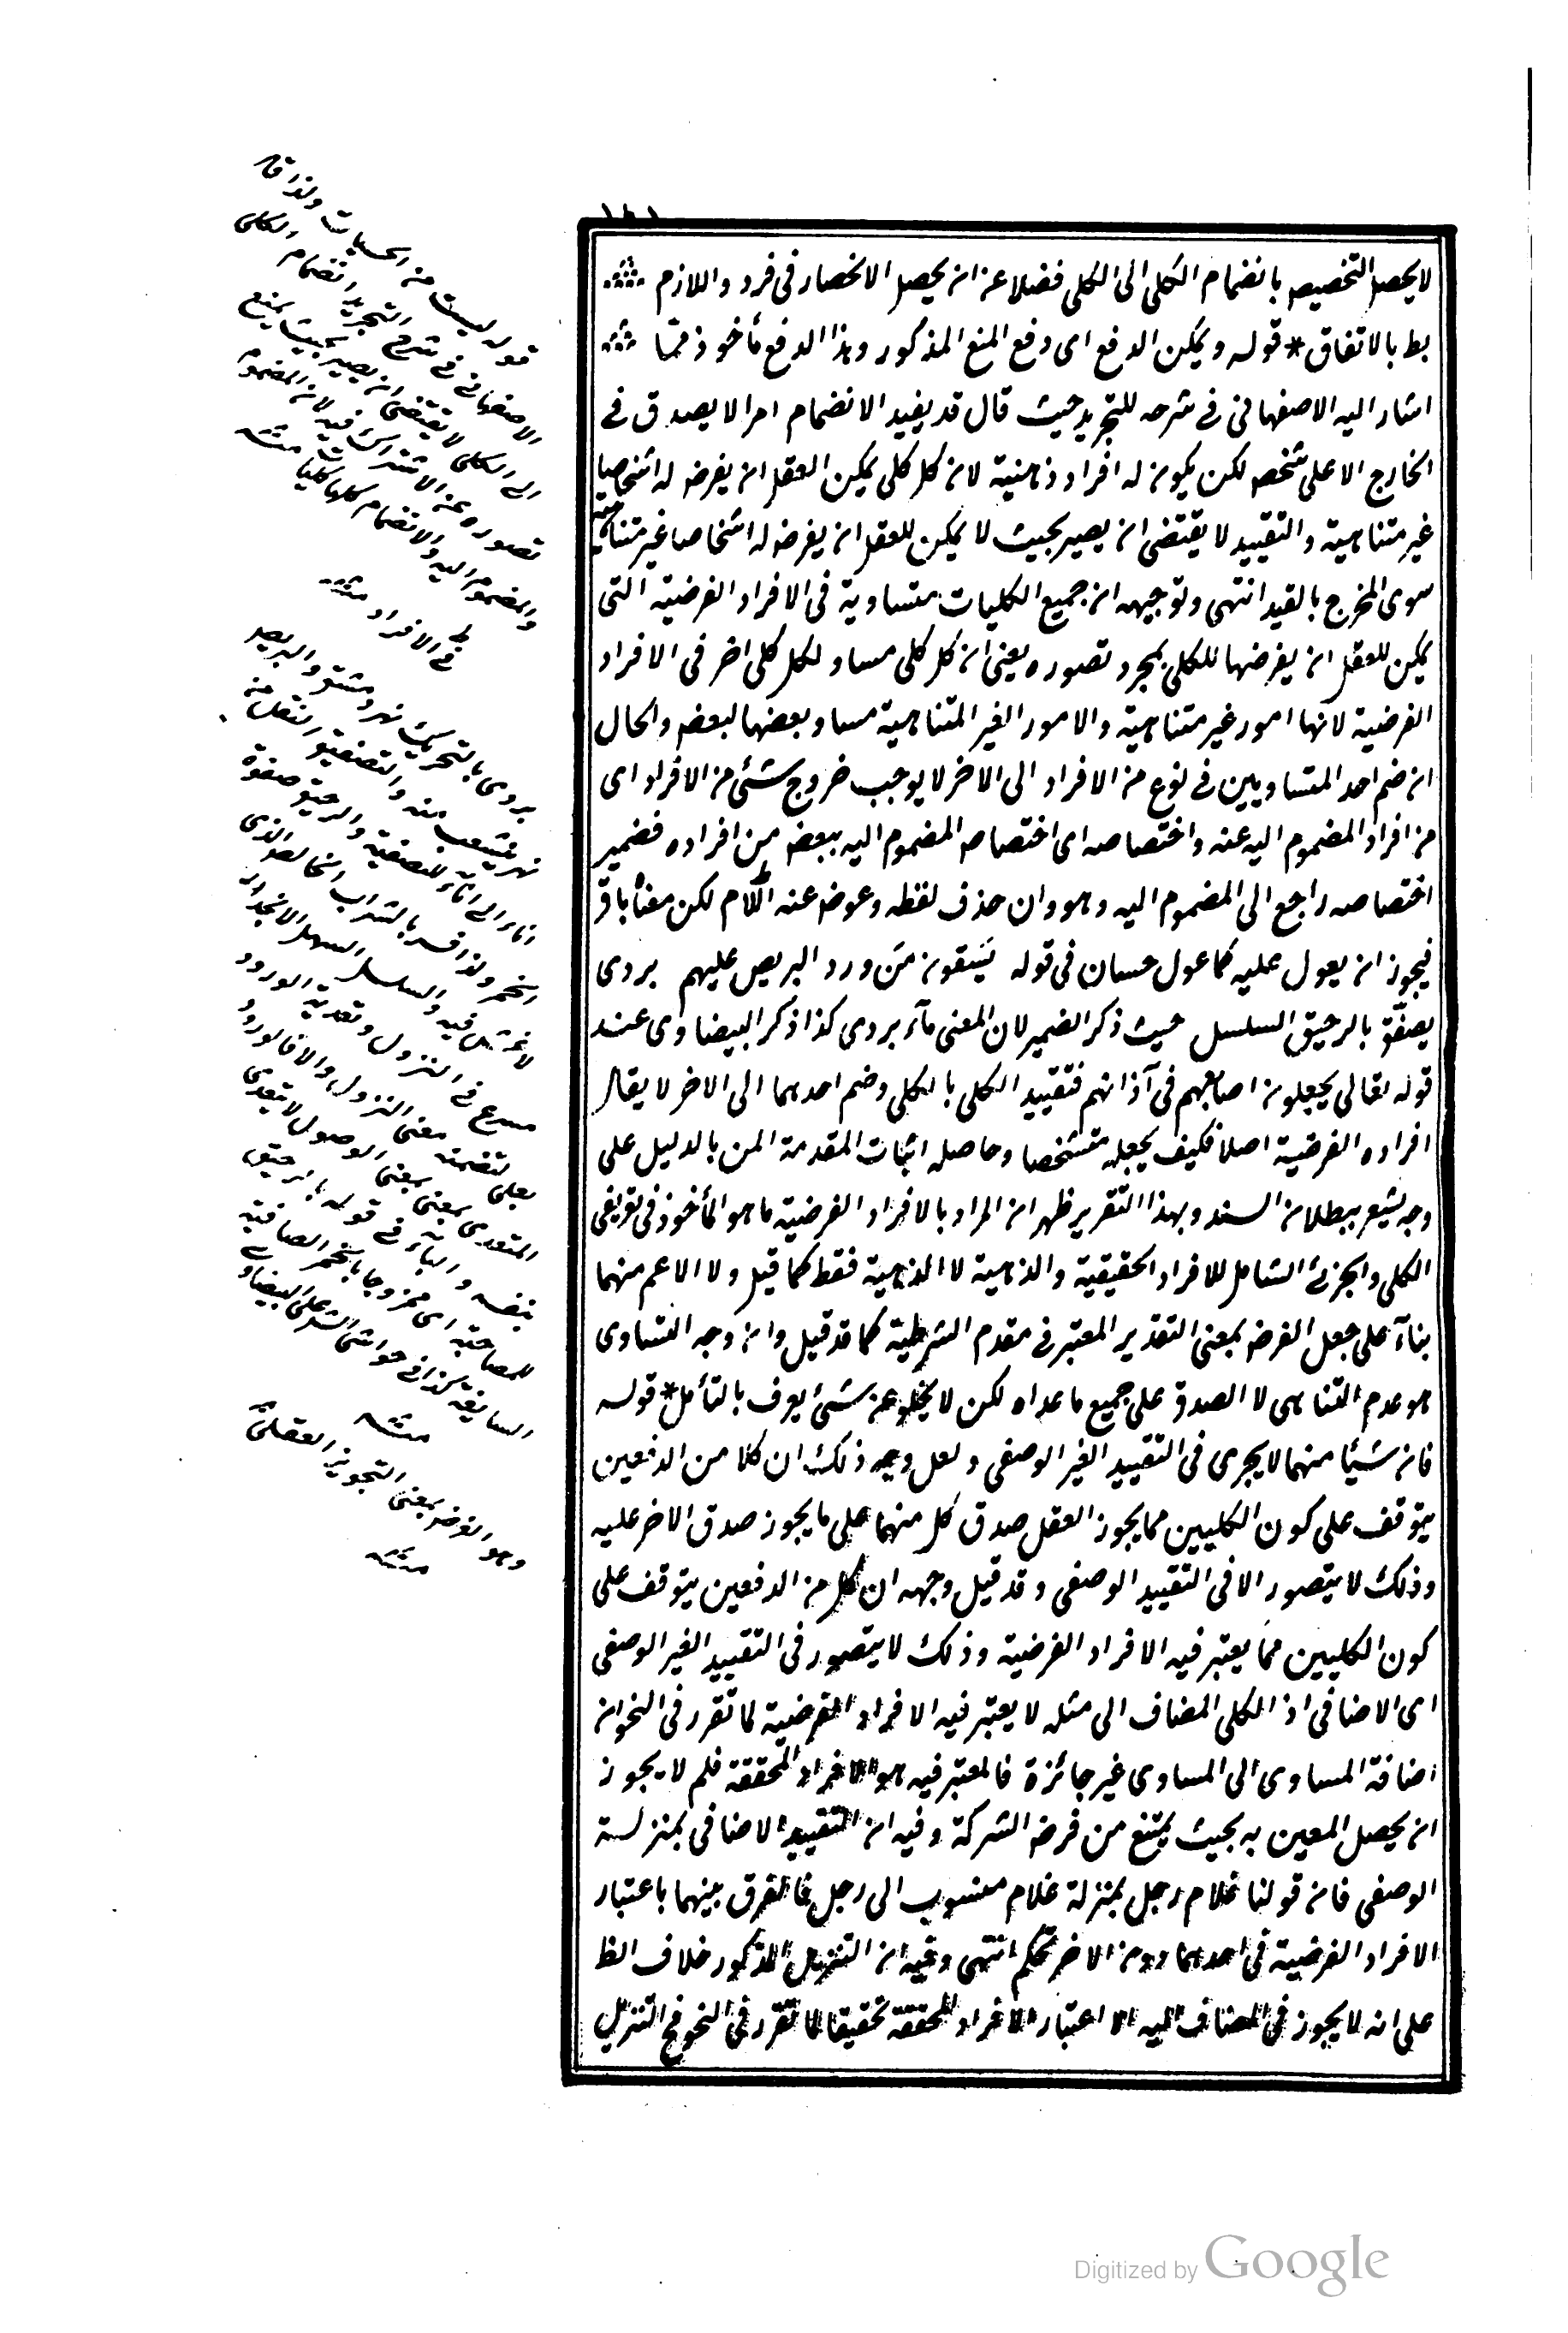 لا يحصل التخصيص بانضمام الكلى الى الكلى فضلا عن ان يحصل الانحصار فى فرد واللازم
بط بالاتفاق * قوله ويمكن الدفع اى دفع المنع المذكور وهذا الدفع مأخوذ مما
اشار اليه الاصفهانى فى شرحه للتجريد حيث قال قد يفيد الانضمام امرا لا يصدق فى
الخارج الا على شخص لكن يكون له افراد ذهنية لان كل كلى يمكن العقل ان يفرض له اشخاصا
غير متناهية والتقييد لا يقتضى ان يصير بحيث لا يمكن للعقل ان يفرض له اشخاصا غير متناهية
سوى المخرج بالقيد انتهى وتوجيهه ان جميع الكليات متساوية فى الافراد الفرضية التى
يمكن للعقل ان يفرضها للكلى بمجرد تصوره يعنى ان كل كلى مساو لكل كلى اخر فى الافراد
الفرضية لانها امور غير متناهية والامور الغير المتناهية مساو بعضها لبعض والحال
ان ضم احد المتساويين فى نوع من الافراد الى الاخر لا يوجب خروج شئ من الافراد اى
من افراد المضموم اليه عنه واختصاصه اى اختصاص المضموم اليه ببعض من افراده فضمير
اختصاصه راجع الى المضموم اليه وهو وان حذف لفظه وعوض عنه اللام لكن معناه باق
فيجوز ان يعول عليه كما عول حسان فى قوله يسقون من ورد البريص عليهم بردى
يصفق بالرحيق السلسل حيث ذكر الضمير لان المعنى ماء بردى كذا ذكر البيضاوى عند
قوله تعالى يجعلون اصابعهم فى آذانهم فتقييد الكلى بالكلى وضم احدهما الى الاخر لا يقال
افراده الفرضية اصلا فكيف يجعله متشخصا وحاصله اثبات المقدمة الممن بالدليل على
وجه يشعر ببطلان السند وبهذا التقرير ظهر ان المراد بالافراد الفرضية ما هو المأخوذ فى تعريفى
الكلى والجزئ الشامل للافراد الحقيقية والذهنية لا الذهنية فقط كما قيل ولا الاعم منهما
بناء على جعل الفرض بمعنى التقدير المعتبر فى مقدم الشرطية كما قد قيل وان وجه التساوى
هو عدم التناهى لا الصدق على جميع ما عداه لكن لا يخلو عن شئ يعرف بالتأمل * قوله
فان شيئا منهما لا يجرى فى التقييد الغير الوصفى ولعل وجه ذلك ان كلا من الدفعين
يتوقف على كون الكليين مما يجوز العقل صدق كل منهما على ما يجوز صدق الاخر عليه
وذلك لا يتصور الا فى التقييد الوصفى وقد قيل وجهه ان كل من الدفعين يتوقف على
كون الكليين مما يعتبر فيه الافراد الفرضية وذلك لا يتصور فى التقييد الغير الوصفى
اى الاضافى اذ الكلى المضاف الى مثله لا يعتبر فيه الافراد الفرضية لما تقرر فى النحو ان
اضافة المساوى الى المساوى غير جائزة فالمعتبر فيه هو الافراد المحققة فلم لا يجوز
ان يحصل المعين به بحيث يمتنع من فرض الشركة وفيه ان التقييد الاضافى بمنزلة
الوصفى فان قولنا غلام رجل بمنزلة غلام منسوب الى رجل فالفرق بينهما باعتبار
الافراد الفرضية فى احدهما دون الاخر تحكم انتهى وفيه ان التنزيل المذكور خلاف الظ
على انه لا يجوز فى المضاف اليه الا اعتبار الافراد المحققة تحقيقا لما تقرر فى النحو فح التنزيل
قوله ليست من الحسيات ولذا قال
الاصفهانى فى شرح التجريد انضمام الكلى
الى الكلى لا يقتضى ان يصير بحيث يمنع
تصوره عن الاشتراك فيه لان المضموم
والمضموم اليه والانضمام كلها كليات منه
فى الافراد منه
بردى بالتحريك نهر دمشق والبريص
نهر يتشعب منه والتصفيق النقل من
اناء الى اناء للتصفية والرحيق صفوة
الخمر ولذا فسر بالشراب الخالص الذى
لا غش فيه والسلسل السهل الانحدار
مسرع فى النزول وتعدية الورود
بعلى لتضمنه معنى النزول والا فالورود
المتعدى بمعنى بمعنى الوصول لا يتعدى
بنفسه والباء فى قوله بالرحيق
للمصاحبة اى ممزوجا بالخمر الصافية
السايغة كذا فى حواشى على البيضاوى
منه
وهو الفرض بمعنى التجويز العقلى
منه